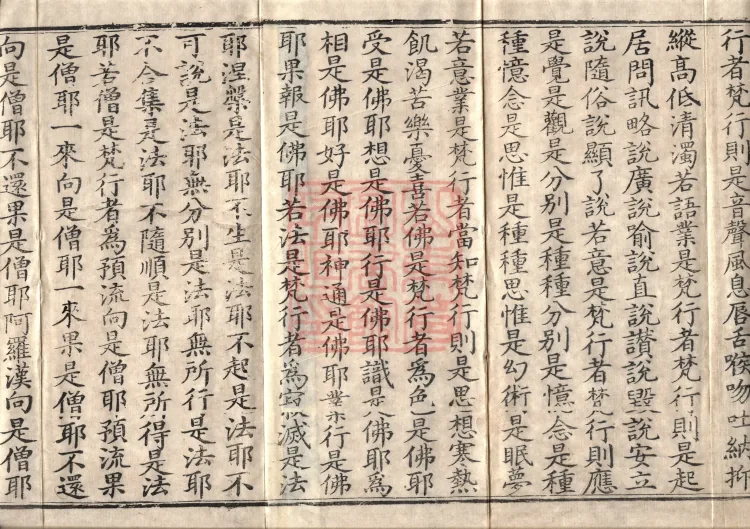 行者梵行則是音聲風息唇舌喉吻吐納抑
縱高低清濁若語業是梵行者梵行則是起
居問訊略說廣說喻說直說讚說毀說安立
說隨俗說顯了說若意是梵行者梵行則應
是覺是觀是分別是種種分別是憶念是種
種憶念是思惟是種種思惟是幻術是眠夢
若意業是梵行者當知梵行則是思想寒熱
飢渴苦樂憂喜若佛是梵行者為色是佛耶
受是佛耶想是佛耶行是佛耶識是佛耶為
相是佛耶好是佛耶神通是佛耶業行是佛
耶果報是佛耶若法是梵行者為寂滅是法
耶涅槃是法耶不生是法耶不起是法耶不
可說是法耶無分別是法耶無所行是法耶
不合集是法耶不隨順是法耶無所得是法
耶若僧是梵行者為預流向是僧耶預流果
是僧耶一來向是僧耶一來果是僧耶不還
向是僧耶不還果是僧耶阿羅漢向是僧耶